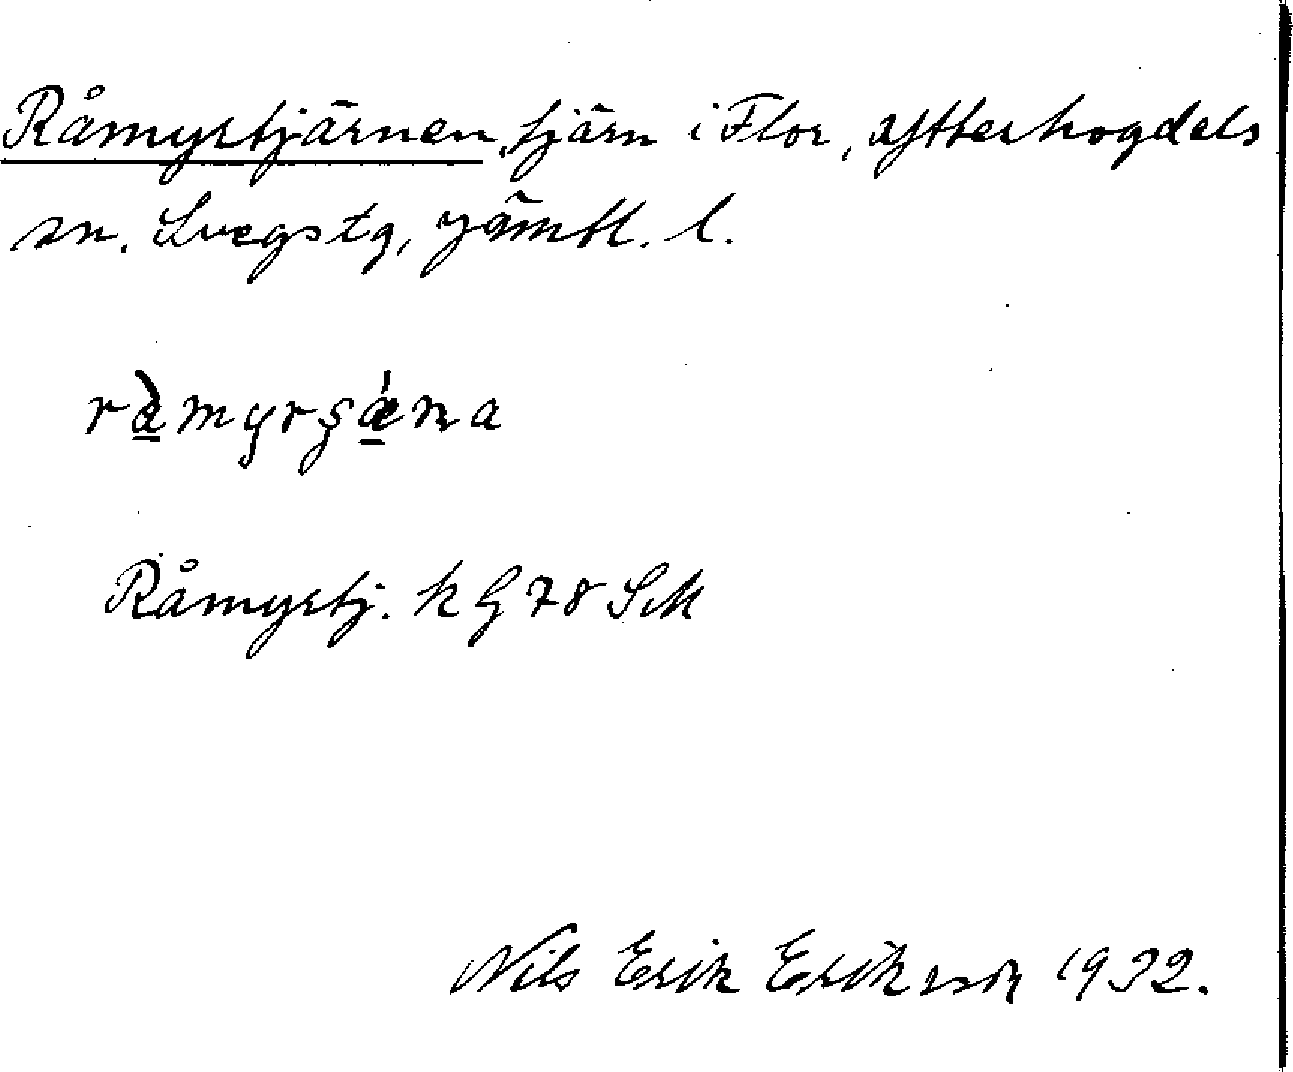 Råmyrtjärnen, tjärn i Flor, Ytterhogdals
sn. Svegs tg, Jämtl. l.
ràmyrʂǽna
Råmyrtj. k G 78 SM
Nils Erik Eriksson 1932.